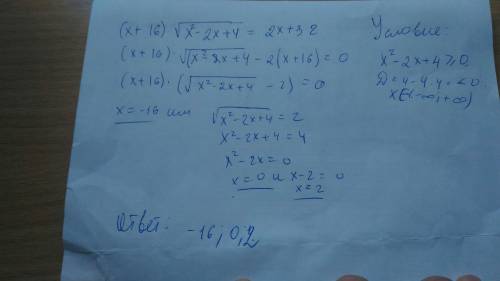 (x+16) √x²-2x+4 = 2x+32
(x+16)·√(x²-2x+4 - 2(x+16)=0
(x+16)·(√x²-2x+4 - 2)=0
x=-16 или √x²-2x+4 = 2
x²-2x+4=4
x²-2x=0
x=0 и x-2=0
x=2
Ответ: -16; 0; 2
Условие:
x²-2x+4≥0
D=4-4·4<0
x∈(-∞;+∞)